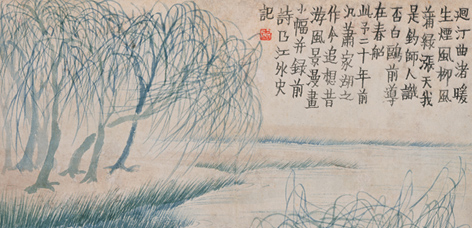 迴汀曲渚暖
生煙風柳風
蒲綠漲天我
是釣師人識
否白鷗前導
在春船
此予三十年前
泛蕭家湖之
作今追想昔
游風景漫畫
小幅并錄前
詩曲江外史
記